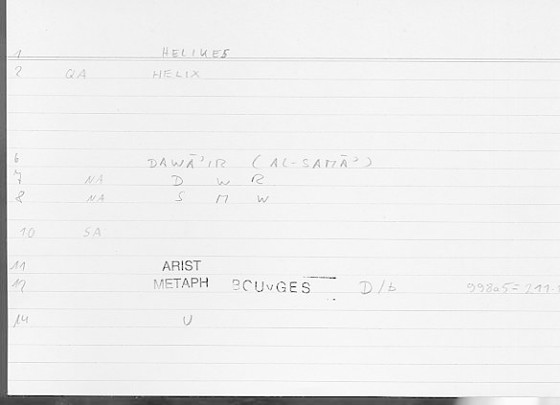 1 HELIKES
2 QA HELIX
6 DAWĀʾIR (AL-SAMĀʾ)
7 NA D W R
8 NA S M W
10 SA
11 ARIST
12 METAPH BOUYGES D/b 998a5=211.
14 U